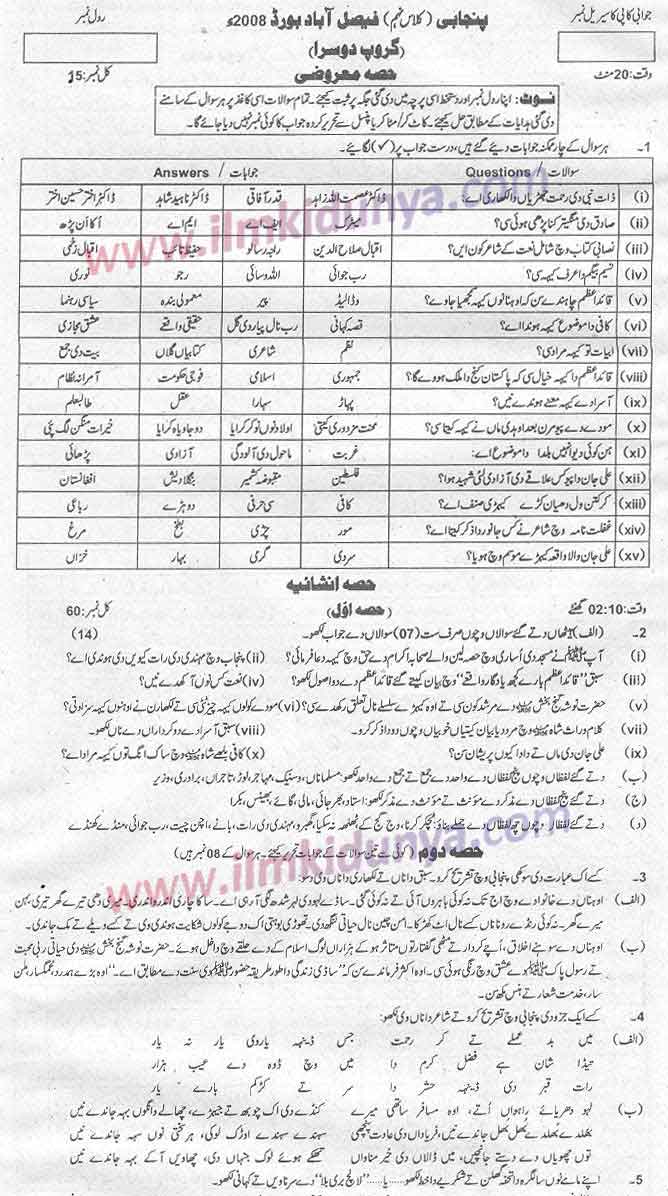 جوابی کاپی کا سیریل نمبر پنجابی (کلاس نہم) فیصل آباد بورڈ 2008ء رول نمبر
(گروپ دوسرا)
وقت:20 منٹ حصہ معروضی کل نمبر:15
نوٹ: اپنا رول نمبر اور دستخط اسی پرچہ میں دی گئی جگہ پر ثبت کیجئے۔ تمام سوالات اسی کاغذ پر ہر سوال کے سامنے
دی گئی ہدایات کے مطابق حل کیجئے۔ کاٹ کر/مٹا کر یا پنسل سے تحریر کردہ جواب کا کوئی نمبر نہیں دیا جائے گا۔
1۔ ہر سوال کے چار ممکنہ جوابات دیئے گئے ہیں، درست جواب پر (✓) لگائیے۔
سوالات / Questions جوابات / Answers
(i) ذات نبی دی رحمت جھڑیاں دا لکھاری اے: ڈاکٹر عصمت اللہ زاہد قدر آفاقی ڈاکٹر ناہید شاہد ڈاکٹر اختر حسین اختر
(ii) صادق دی منگیتر کنا پڑھی ہوئی سی؟ میٹرک ایف اے ایم اے اُکا ان پڑھ
(iii) نصابی کتاب وچ شامل نعت کے شاعر کون ایں؟ اقبال صلاح الدین راجہ رسالو حفیظ تائب اقبال زخمی
(iv) نسیم بیگم دا عرف کیہہ سی؟ رب جوائی اللہ وسائی رجو نوری
(v) قائداعظم چاہندے سن کہ اوہناں نوں کیہہ سمجھیا جاوے؟ وڈا لیڈ پیر معمولی بندہ سیاسی رہنما
(vi) کافی دا موضوع کیہہ ہوندا اے؟ قصہ کہانی رب نال پیار دی گل حقیقی واقعے عشق مجازی
(vii) ابیات تو کیہہ مراد سی؟ نظم شاعری کتابیاں گلاں بیت دی جمع
(viii) قائداعظم دا کیہہ خیال سی کہ پاکستان کنج دا ملک ہووے گا؟ جمہوری اسلامی فوجی حکومت آمرانہ نظام
(ix) آسرا دے کیہہ معنے ہوندے نیں؟ پہاڑ سہارا عقل طالب علم
(x) مودے دے پیو مرن بعد اوہدی ماں نے کیہہ کیتا سی؟ محنت مزدوری کیتی اولاد نوں نوکر کرایا دوجا ویاہ کرایا خیرات منگن لگ پئی
(xi) ہن کوئی دیوا نہیں بلدا دا موضوع اے: غربت ماحول دی آلودگی آزادی پڑھائی
(xii) علی جان دا پیو کس علاقے دی آزادی لئی شہید ہوا؟ فلسطین مقبوضہ کشمیر بنگلا دیش افغانستان
(xiii) کر کتن ول دھیان کڑے کیہڑی صنف اے؟ کافی سی حرفی دوہڑے رباعی
(xiv) غفلت نامہ وچ شاعر نے کس جانور دا ذکر کیتا اے؟ مور چڑی بطخ مرغ
(xv) علی جان والا واقعہ کیہڑے موسم وچ ہویا؟ سردی گرمی بہار خزاں
حصہ انشائیہ
وقت:02:10 گھنٹے (حصہ اوّل) کل نمبر:60
2۔ (الف) ہیٹھاں دتے گئے سوالاں وچوں صرف ست (07) سوالاں دے جواب لکھو۔ (14)
(i) آپ ﷺ نے مسجد دی اُساری وچ حصہ لین والے صحابہ اکرام دے حق وچ کیہہ دعا فرمائی؟ (ii) پنجاب وچ مہندی دی رات کیویں دی ہوندی اے؟
(iii) سبق "قائداعظم بارے کجھ یادگار واقعے" وچ بیان کیتے گئے قائداعظم دے دو اصول لکھو۔ (iv) نعت کس نوں آکھدے نیں؟
(v) حضرت نوشہ گنج بخش دے مرشد کون سی تے اوہ کیہڑے سلسلے نال تعلق رکھدے سی؟ (vi) مودے کولوں کیہہ چیز منگی سی تے لکھارن نے اوہنوں کیہہ سزا دتی؟
(vii) کلام وارث شاہ وچ مرد دیاں بیان کیتیاں خوبیاں وچوں دو دا ذکر کرو۔ (viii) سبق آسرا دے دو کرداراں دے ناں لکھو۔
(ix) علی جان دی ماں تے دادا کیوں پریشان سن؟ (x) کافی بلھے شاہ وچ ساک انگ توں کیہہ مراد اے؟
(ب) دتے گئے لفظاں وچوں پنج لفظاں دے واحد دے جمع تے جمع دے واحد لکھو: مسلماناں، وسنیک، مہاجر، لوڑ، تاجراں، برادری، وزیر
(ج) دتے گئے پنج لفظاں دے مذکر دے مونث تے مونث دے مذکر لکھو: استاد، بھرجائی، مالی، گائے، بھینس، بکرا
(د) دتے گئے لفظاں وچوں پنج لفظاں دے جملے بناؤ: ٹچکر کرنا، وج گج کے گبھرو، مہندی دی رات، بانے، اچن چیت، رب جوائی، منڈے کھنڈے
حصہ دوم (کوئی سے تین سوالات کے جوابات تحریر کیجئے۔ ہر سوال کے 08 نمبر ہیں)
3۔ کسے اک عبارت دی سوکھی پنجابی وچ تشریح کرو۔ سبق دا ناں تے لکھاری دا ناں وی دسو:
(الف) اوہناں دے خانوادے وچ اج تک نہ کوئی باہروں آئی تے نہ کوئی گئی۔ ساڈے لہودی لہر شدھ لگی آ رہی اے۔ ساکا چاری اندرو اندری۔ میری دھی تیرے گھر تیری بہن
میرے گھر۔ نہ کوئی رنڈے نہ روناں کسے نال اٹ کھڑکا۔ امن چین نال حیاتی لنگھدی۔ تھوڑی بہتی اک دوجے کولوں شکایت ہوندی وی تے کسے ویلے تے ملک جاندی۔
(ب) اوہناں دے سوہنے اخلاق، اُچے کردار تے مٹھی گفتار توں متاثر ہو کے ہزاراں لوگ اسلام دے حلقے وچ داخل ہوئے۔ حضرت نوشہ گنج بخش دی حیاتی ربی محبت
تے رسول پاک ﷺ دے عشق وچ رنگی ہوئی سی۔ اوہ اکثر فرماندے سن کہ "ساڈی زندگی دا طور طریقہ حضور ﷺ دی سنت دے مطابق اے"۔ اوہ بڑے ہمدرد، غمگسار، ملن
سار، خدمت شعار تے ہنس مکھ سن۔
4۔ کسے ایک جزو دی پنجابی وچ تشریح کرو تے شاعر دا ناں وی لکھو:
(الف) میں بد عملے تے کر رحمت جس ڈینہہ یاروی یار نہ یار
تیڈا شان ہے فضل کرم دا میں وچ ڈوہ دے عیب ہزار
رات قبر دی ڈینہہ حشر دا سر تے کڑکم بارے یار
(ب) لہو دھریائے راہواں اُتے، اوہ مسافر ساتھی میرے کنڈے دی اک چوبھ تے جیہڑے، چھالے وانگوں بہہ جاندے نیں
بُھلدے بُھلدے بُھل بُھل جاندے نیں، فریاداں دی عادت پنچھی سہندے سہندے اوڑک لوکی، ہر سختی نوں سہہ جاندے نیں
توں چھویاں دے دستے جانیں، میں ڈالاں دی خیر مناواں تھکے ہوئے لوگ جہاں دی، چھاویں آ کے بہہ جاندے نیں
5۔ اپنے ماے نوں سالگرہ دا تحفہ گھلن تے شکریے دا خط لکھو......یا......"لالچ بری بلا" دے سرناویں تے کہانی لکھو۔
www.ilmkidunya.com
www.ilmkidunya.com